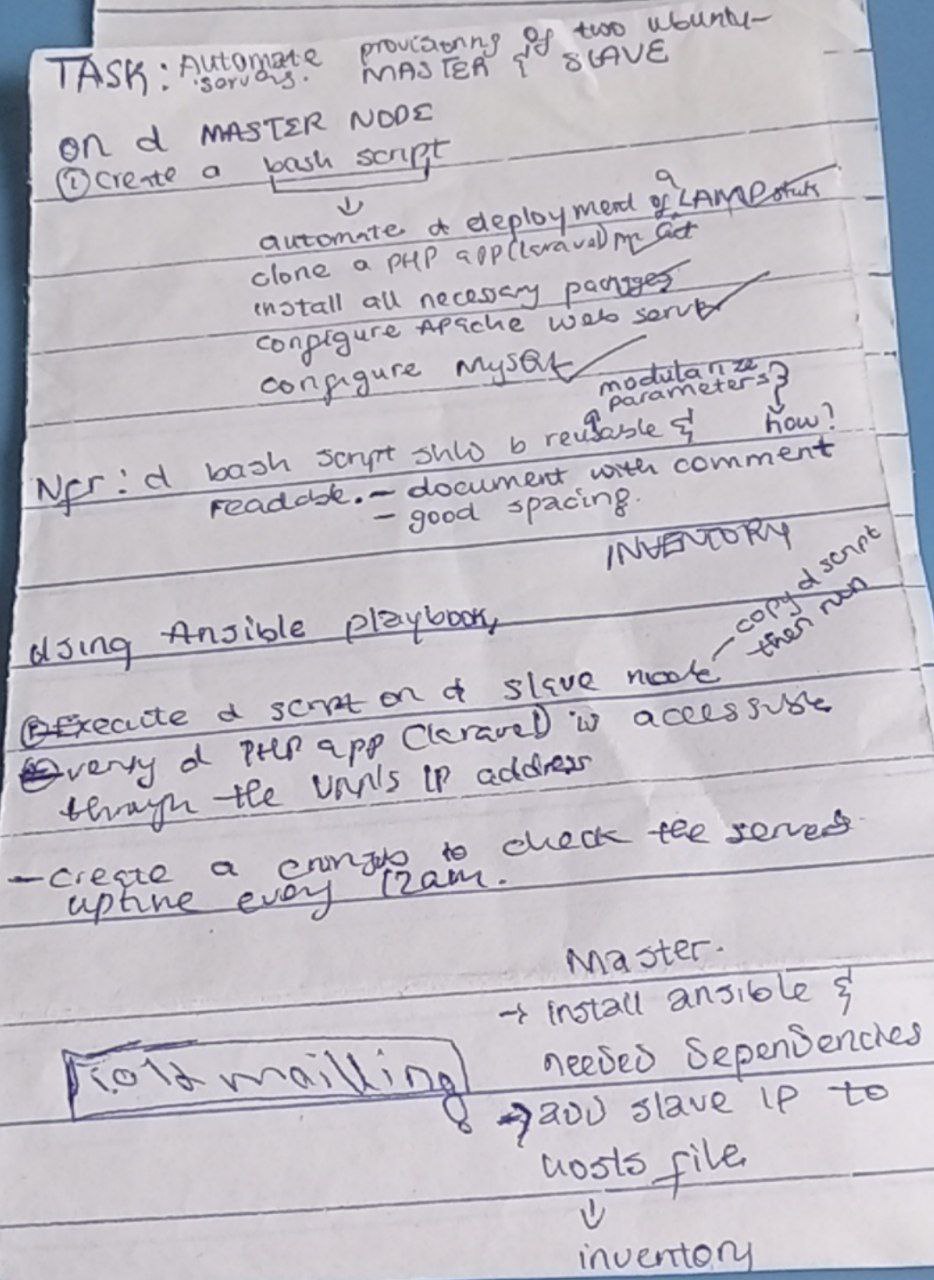 TASK: Automate provisioning of two ubuntu-
servers. MASTER & SLAVE
on d MASTER NODE
① create a bash script
↓
automate d deployment of a LAMP stack
clone a PHP app (laravel) from Git
install all necessary packages
configure Apache web server
configure MySQL
modularize
parameters } how?
Nfr: d bash script shld b reusable &
readable. - document with comment
- good spacing.
INVENTORY
Using Ansible playbook,
Execute d script on d slave node - copy d script
then run
verify d PHP app (laravel) is accessible
through the VM's IP address
- create a cronjob to check the servers
uptime every 12am.
Master.
→ install ansible &
needed dependencies
→ add slave IP to
hosts file
↓
inventory
cold mailling